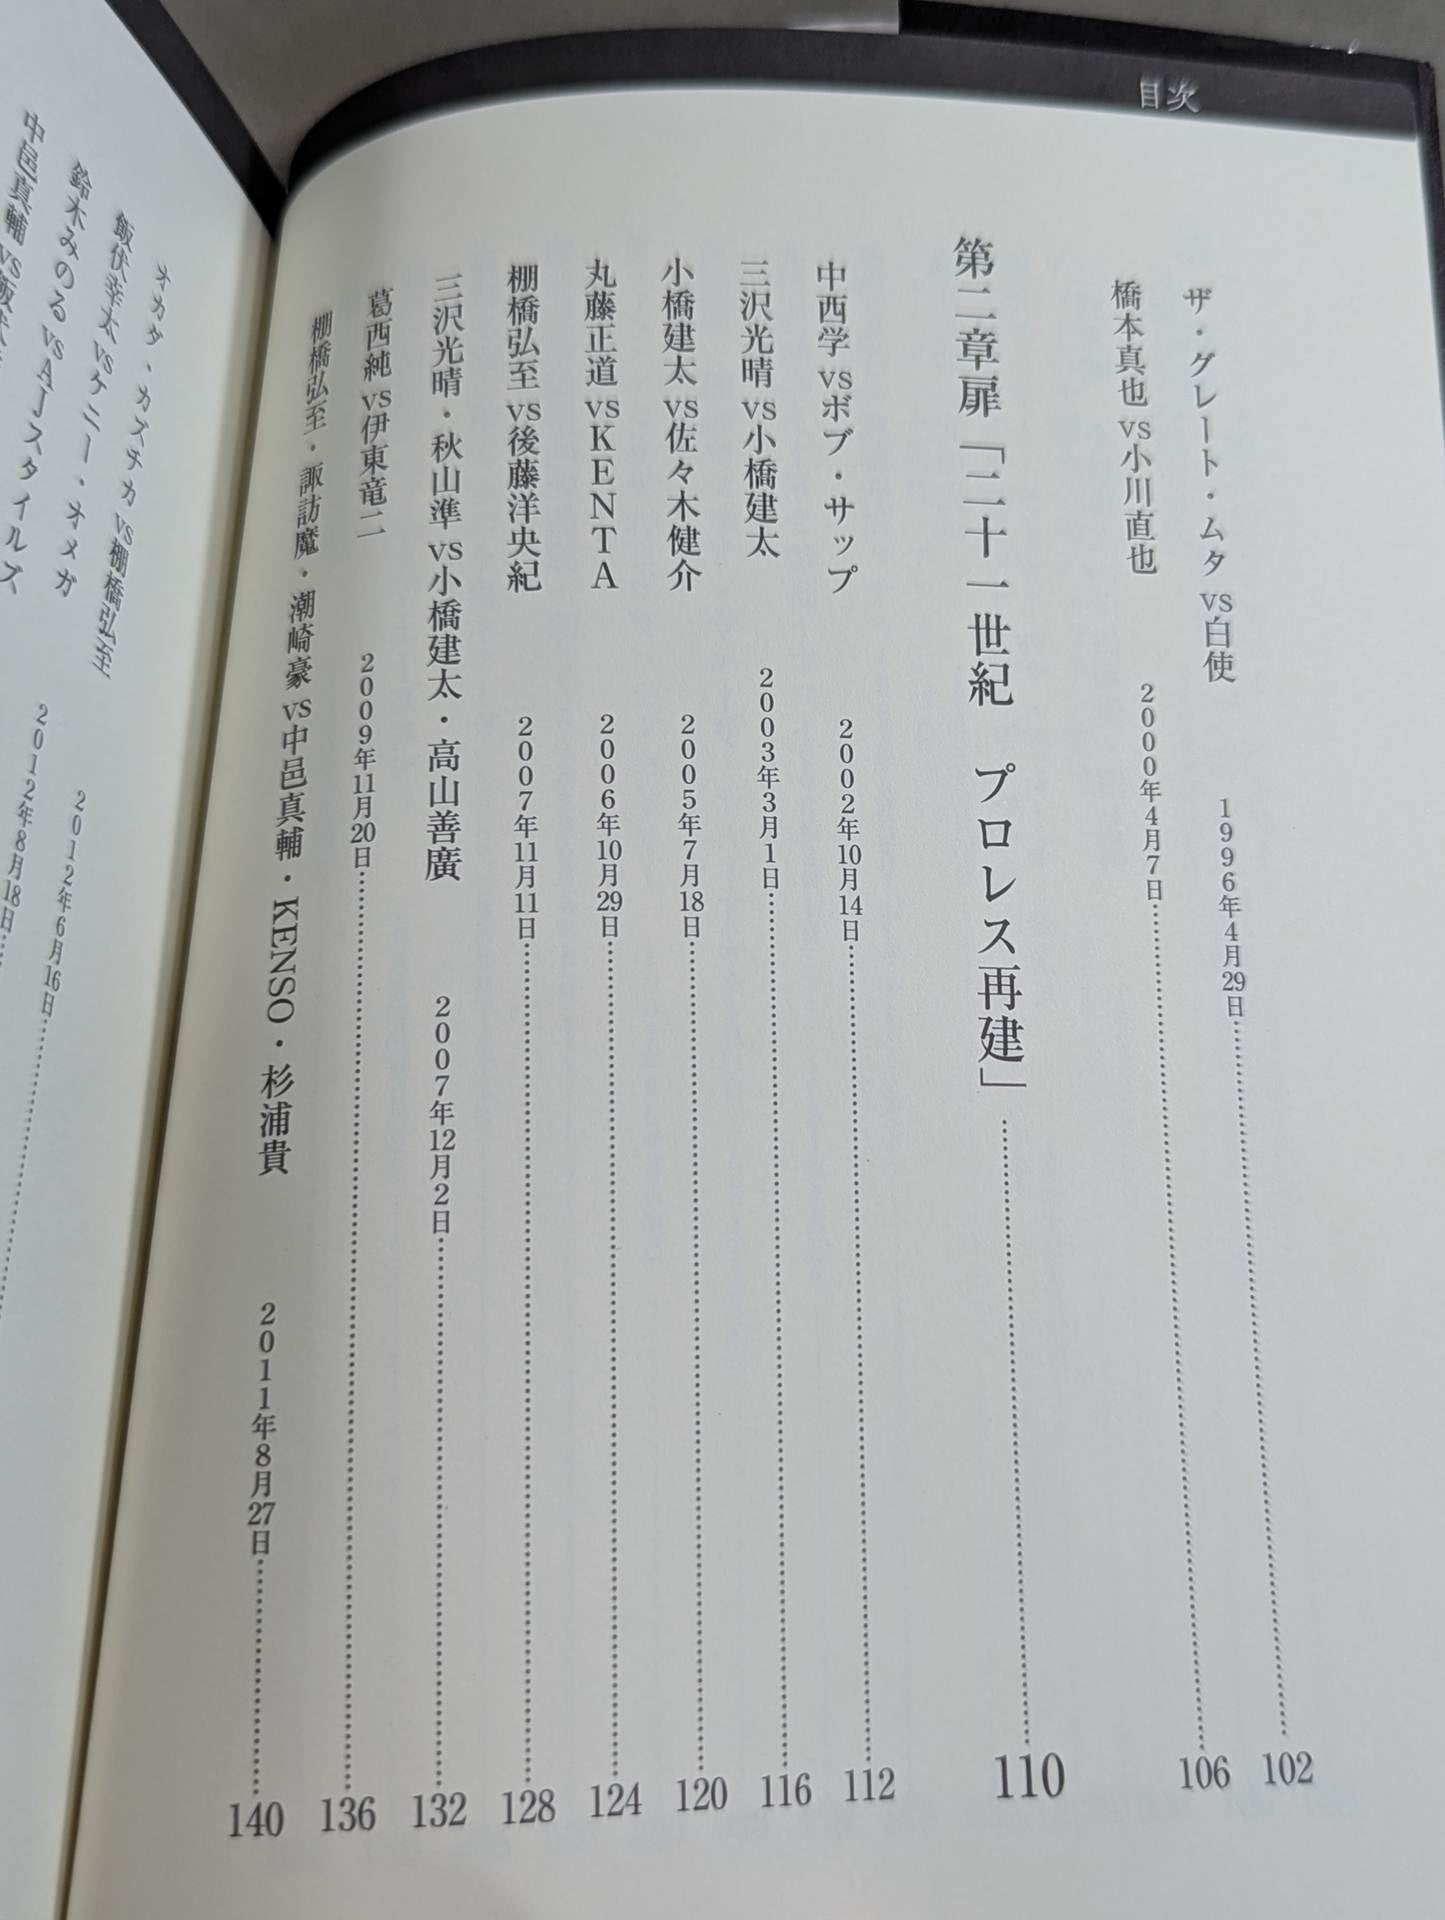 目次
ザ・グレート・ムタ vs 白使 1996年4月29日 102
橋本真也 vs 小川直也 2000年4月7日 106
第二章扉「二十一世紀 プロレス再建」 110
中西学 vs ボブ・サップ 2002年10月14日 112
三沢光晴 vs 小橋建太 2003年3月1日 116
小橋建太 vs 佐々木健介 2005年7月18日 120
丸藤正道 vs KENTA 2006年10月29日 124
棚橋弘至 vs 後藤洋央紀 2007年11月11日 128
三沢光晴・秋山準 vs 小橋建太・高山善廣 2007年12月2日 132
葛西純 vs 伊東竜二 2009年11月20日 136
棚橋弘至・諏訪魔・潮崎豪 vs 中邑真輔・KENSO・杉浦貴 2011年8月27日 140
オカダ・カズチカ vs 棚橋弘至 2012年6月16日
飯伏幸太 vs ケニー・オメガ 2012年8月18日
鈴木みのる vs AJスタイルズ
中邑真輔 vs 飯伏